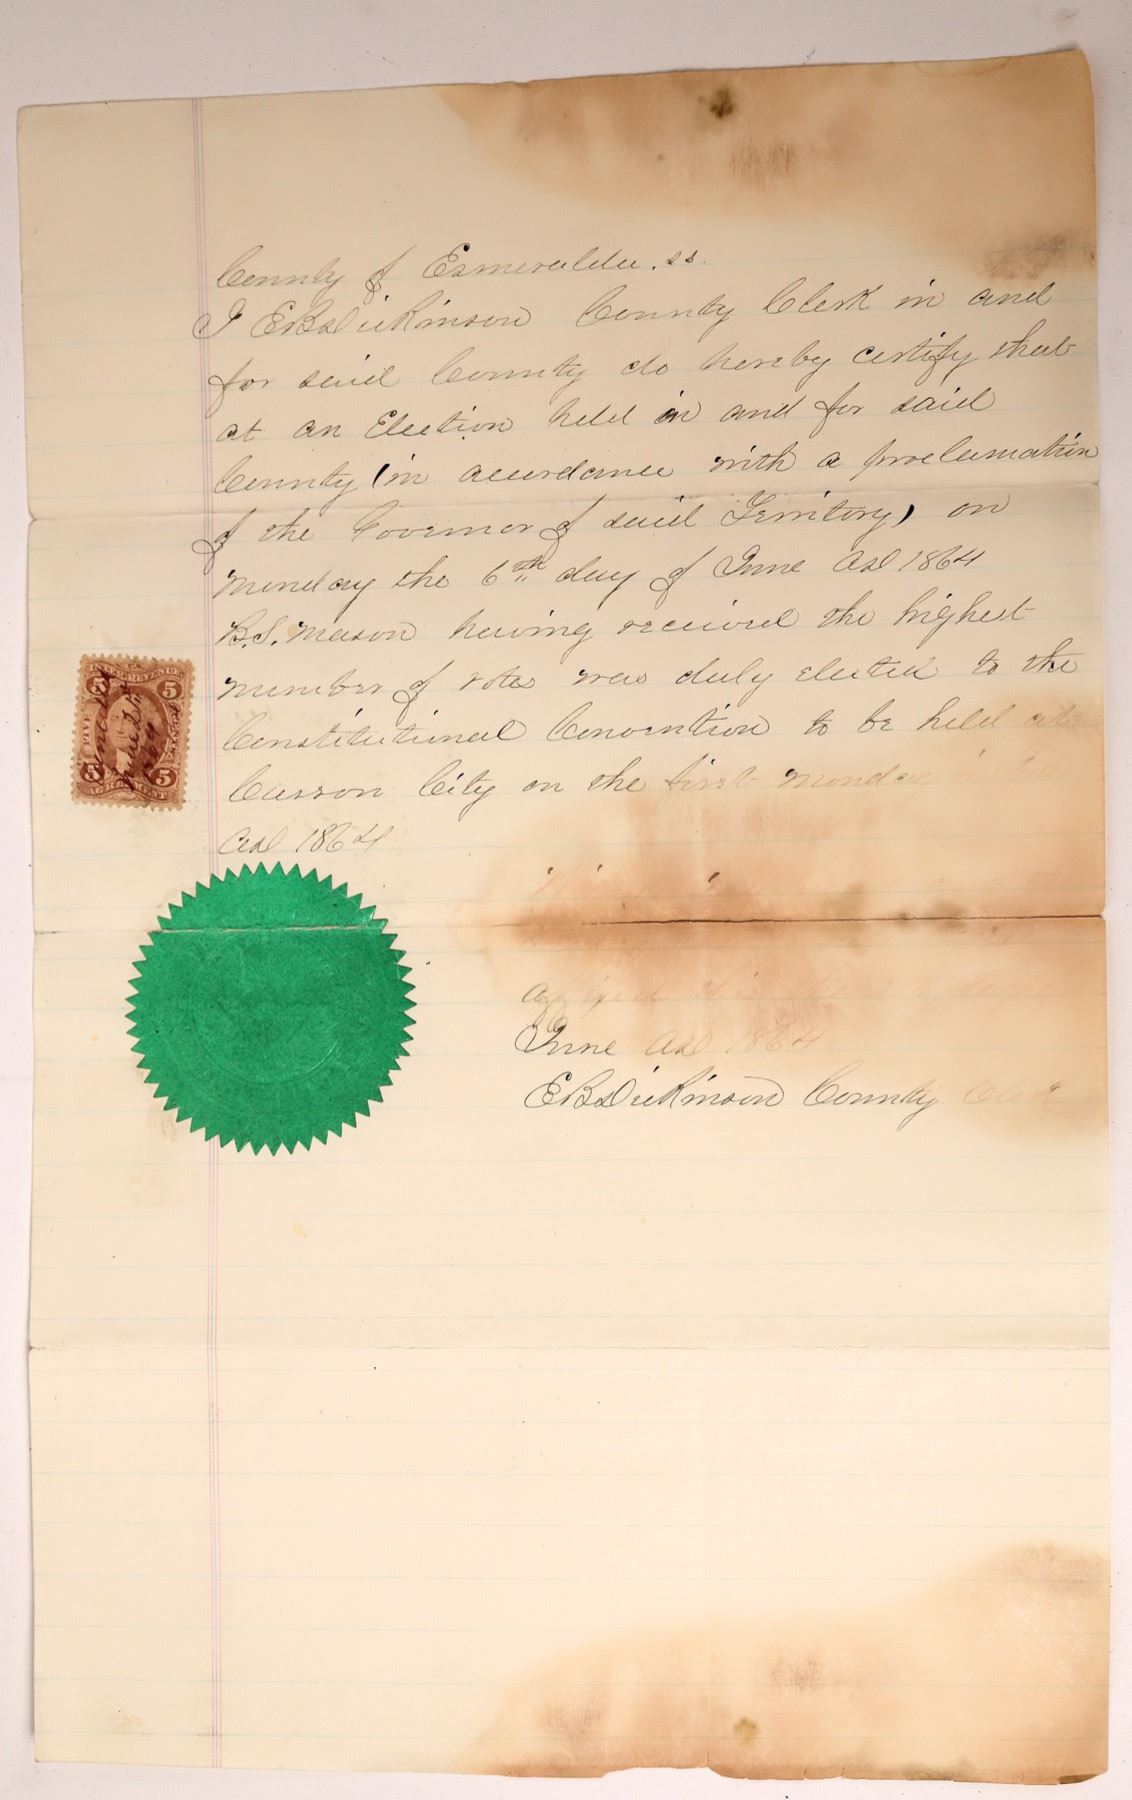 County of Esmeralda. ss.
I E B Dickinson County Clerk in and
for said County do hereby certify that
at an Election held in and for said
County (in accordance with a proclamation
of the Governor of said Territory) on
Monday the 6th day of June AD 1864
B.S. Mason having received the highest
number of votes was duly elected to the
Constitutional Convention to be held at
Carson City on the first Monday
AD 1864
affixed this
June AD 1864
E B Dickinson County Clerk
INTER. REVENUE
5 5
FIVE CENTS
5 5
AGREEMENT